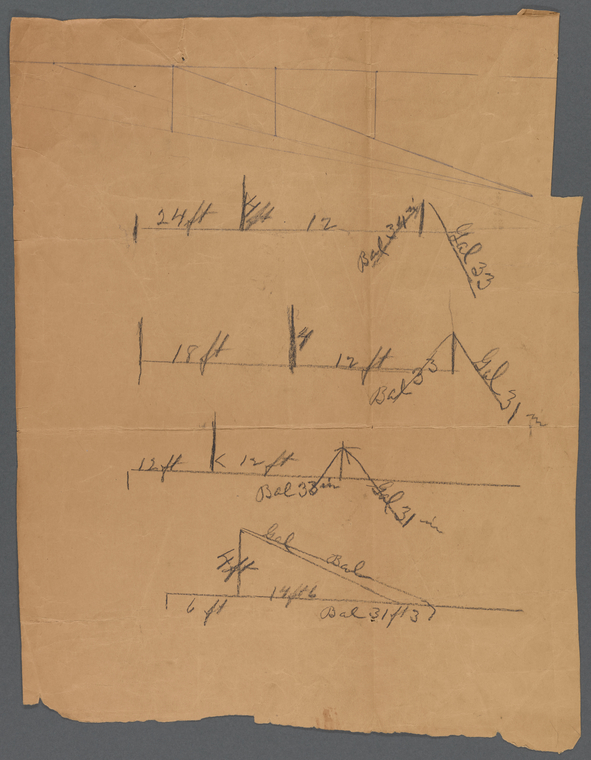 24ft 4ft 12 Bal 34 in Gal 33
18 ft 4 12 ft Bal 33 Gal 31 in
12 ft 12 ft Bal 33 in Gal 31 in
Gal Bal
4 ft
6 ft 14 ft 6 Bal 31 ft 3